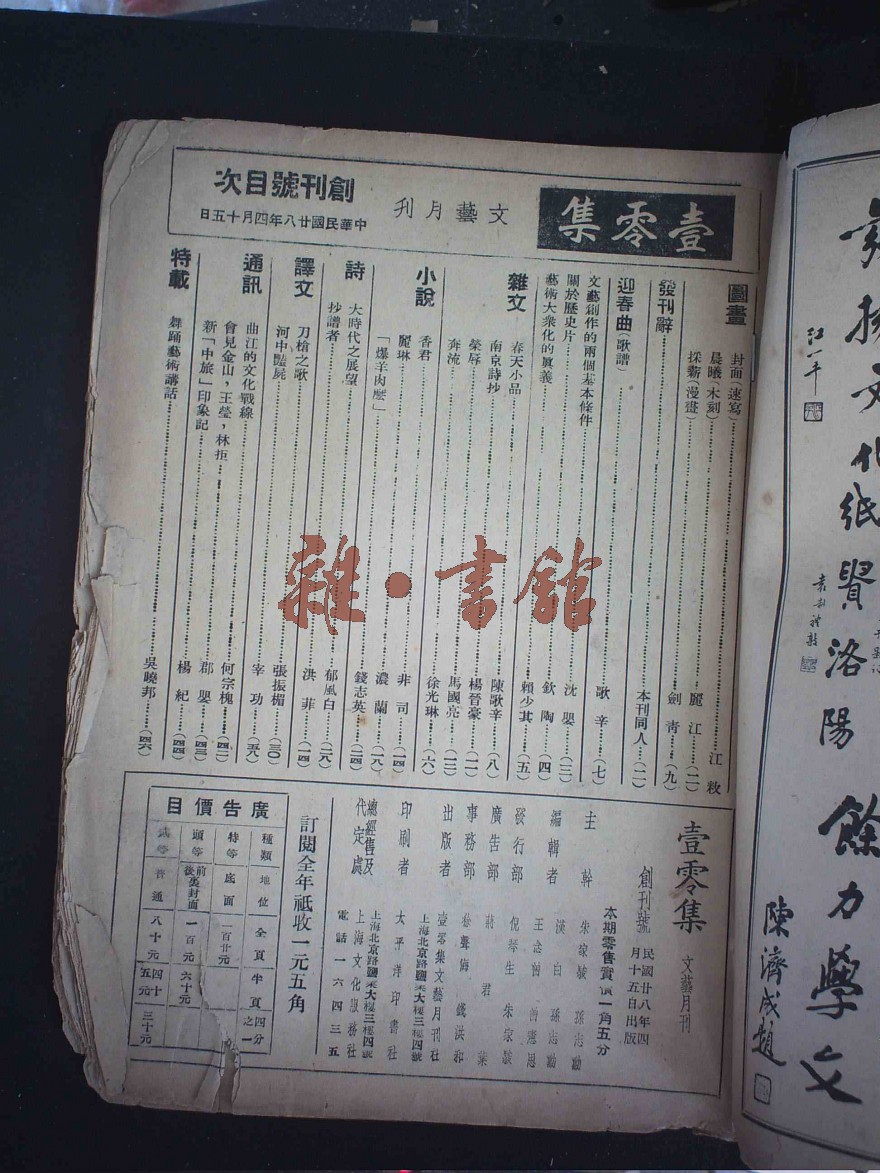 壹零集
文藝月刊
創刊號目次
中華民國廿八年四月十五日
圖畫
封面(速寫)……江敉
晨曦(木刻)……麗江(二)
採薪(漫畫)……劍青(九)
發刊辭……本刊同人(二)
迎春曲(歌譜)……歌辛(七)
文藝創作的兩個基本條件……沈嬰(三)
關於歷史片……欽陶(四)
藝術大衆化的眞義……賴少其(五)
雜文
春天小品……陳歌辛(八)
南京詩抄……楊晉豪(一一)
榮辱……馬國亮(一二)
奔流……徐光琳(六)
小說
香君……非司(一四)
麗琳……濃蘭(一八)
「爆羊肉麽」……錢志英(二四)
詩
大時代之展望……郁風白(二八)
抄譜者……洪菲(一四)
譯文
刀槍之歌……張振楣(三〇)
河中豔屍……宰功(五八)
通訊
曲江的文化戰線……何宗槐(四二)
會見金山,王瑩,林拒……郡嬰(四三)
新「中旅」印象記……楊紀(四四)
特載
舞踊藝術講話……吳曉邦(四六)
壹零集 文藝月刊
創刊號 民國廿八年四月十五日出版
本期零售實價一角五分
主幹 朱家駿 孫志勳
編輯者 漢白 孫志勳
王念曾 曾憲恩
發行部 倪琴生 朱家駿
廣告部 蔣君葉
事務部 徐聲侮 錢洪和
出版者 壹零集文藝月刊社
上海北京路鹽業大樓三樓四號
印刷者 太平洋印書社
總經售及代定處 上海北京路鹽業大樓三樓四號
上海文化服務社
電話一六四三五
訂閱全年祗收一元五角
廣告價目
種類 地位 全頁 半頁 四分之一
特等 底面 一百廿元
頭等 前後裏封面 一百元 六十元
普通 八十元 四十五元 三十元
江一平
文化
紙貴洛陽
餘力學文
陳濟成題
雜·書館